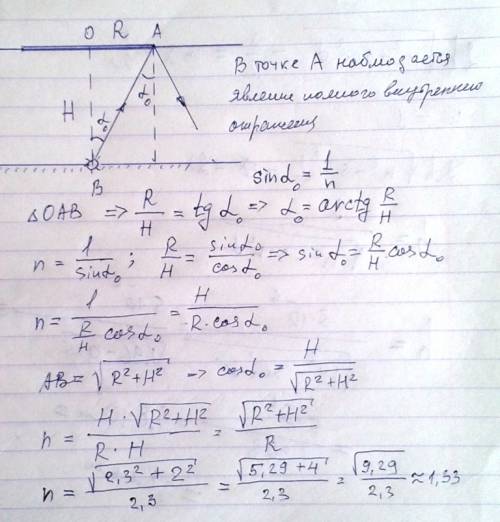 O R A
H
α₀
α₀
B
В точке А наблюдается
явление полного внутреннего
отражения
sinα₀ = 1/n
△OAB => R/H = tg α₀ => α₀ = arctg R/H
n = 1/sinα₀ ; R/H = sinα₀/cosα₀ => sinα₀ = R/H cosα₀
n = 1/(R/H cosα₀) = H/(R·cosα₀)
AB = √(R²+H²) -> cosα₀ = H/√(R²+H²)
n = H·√(R²+H²)/(R·H) = √(R²+H²)/R
n = √(2,3²+2²)/2,3 = √(5,29+4)/2,3 = √9,29/2,3 ≈ 1,33